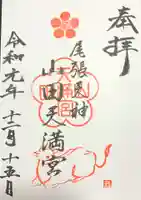 奉拝
尾張天神
山田天満宮
令和元年 十二月 十五日